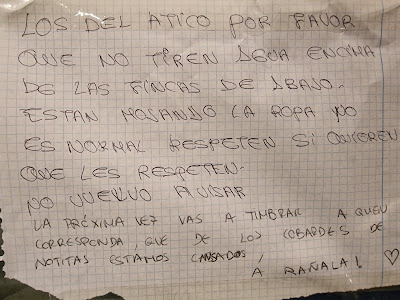 LOS DEL ATICO POR FAVOR
QUE NO TIREN AGUA ENCIMA
DE LAS FINCAS DE ABAJO.
ESTAN MOJANDO LA ROPA NO
ES NORMAL RESPETEN SI QUIEREN
QUE LES RESPETEN.
NO VUELVO A AVISAR
LA PRÓXIMA VEZ VAS A TIMBRAR A QUEN
CORRESPONDA, QUE DE LOS COBARDES DE
NOTITAS ESTAMOS CANSADOS,
A RAÑALA! ♡